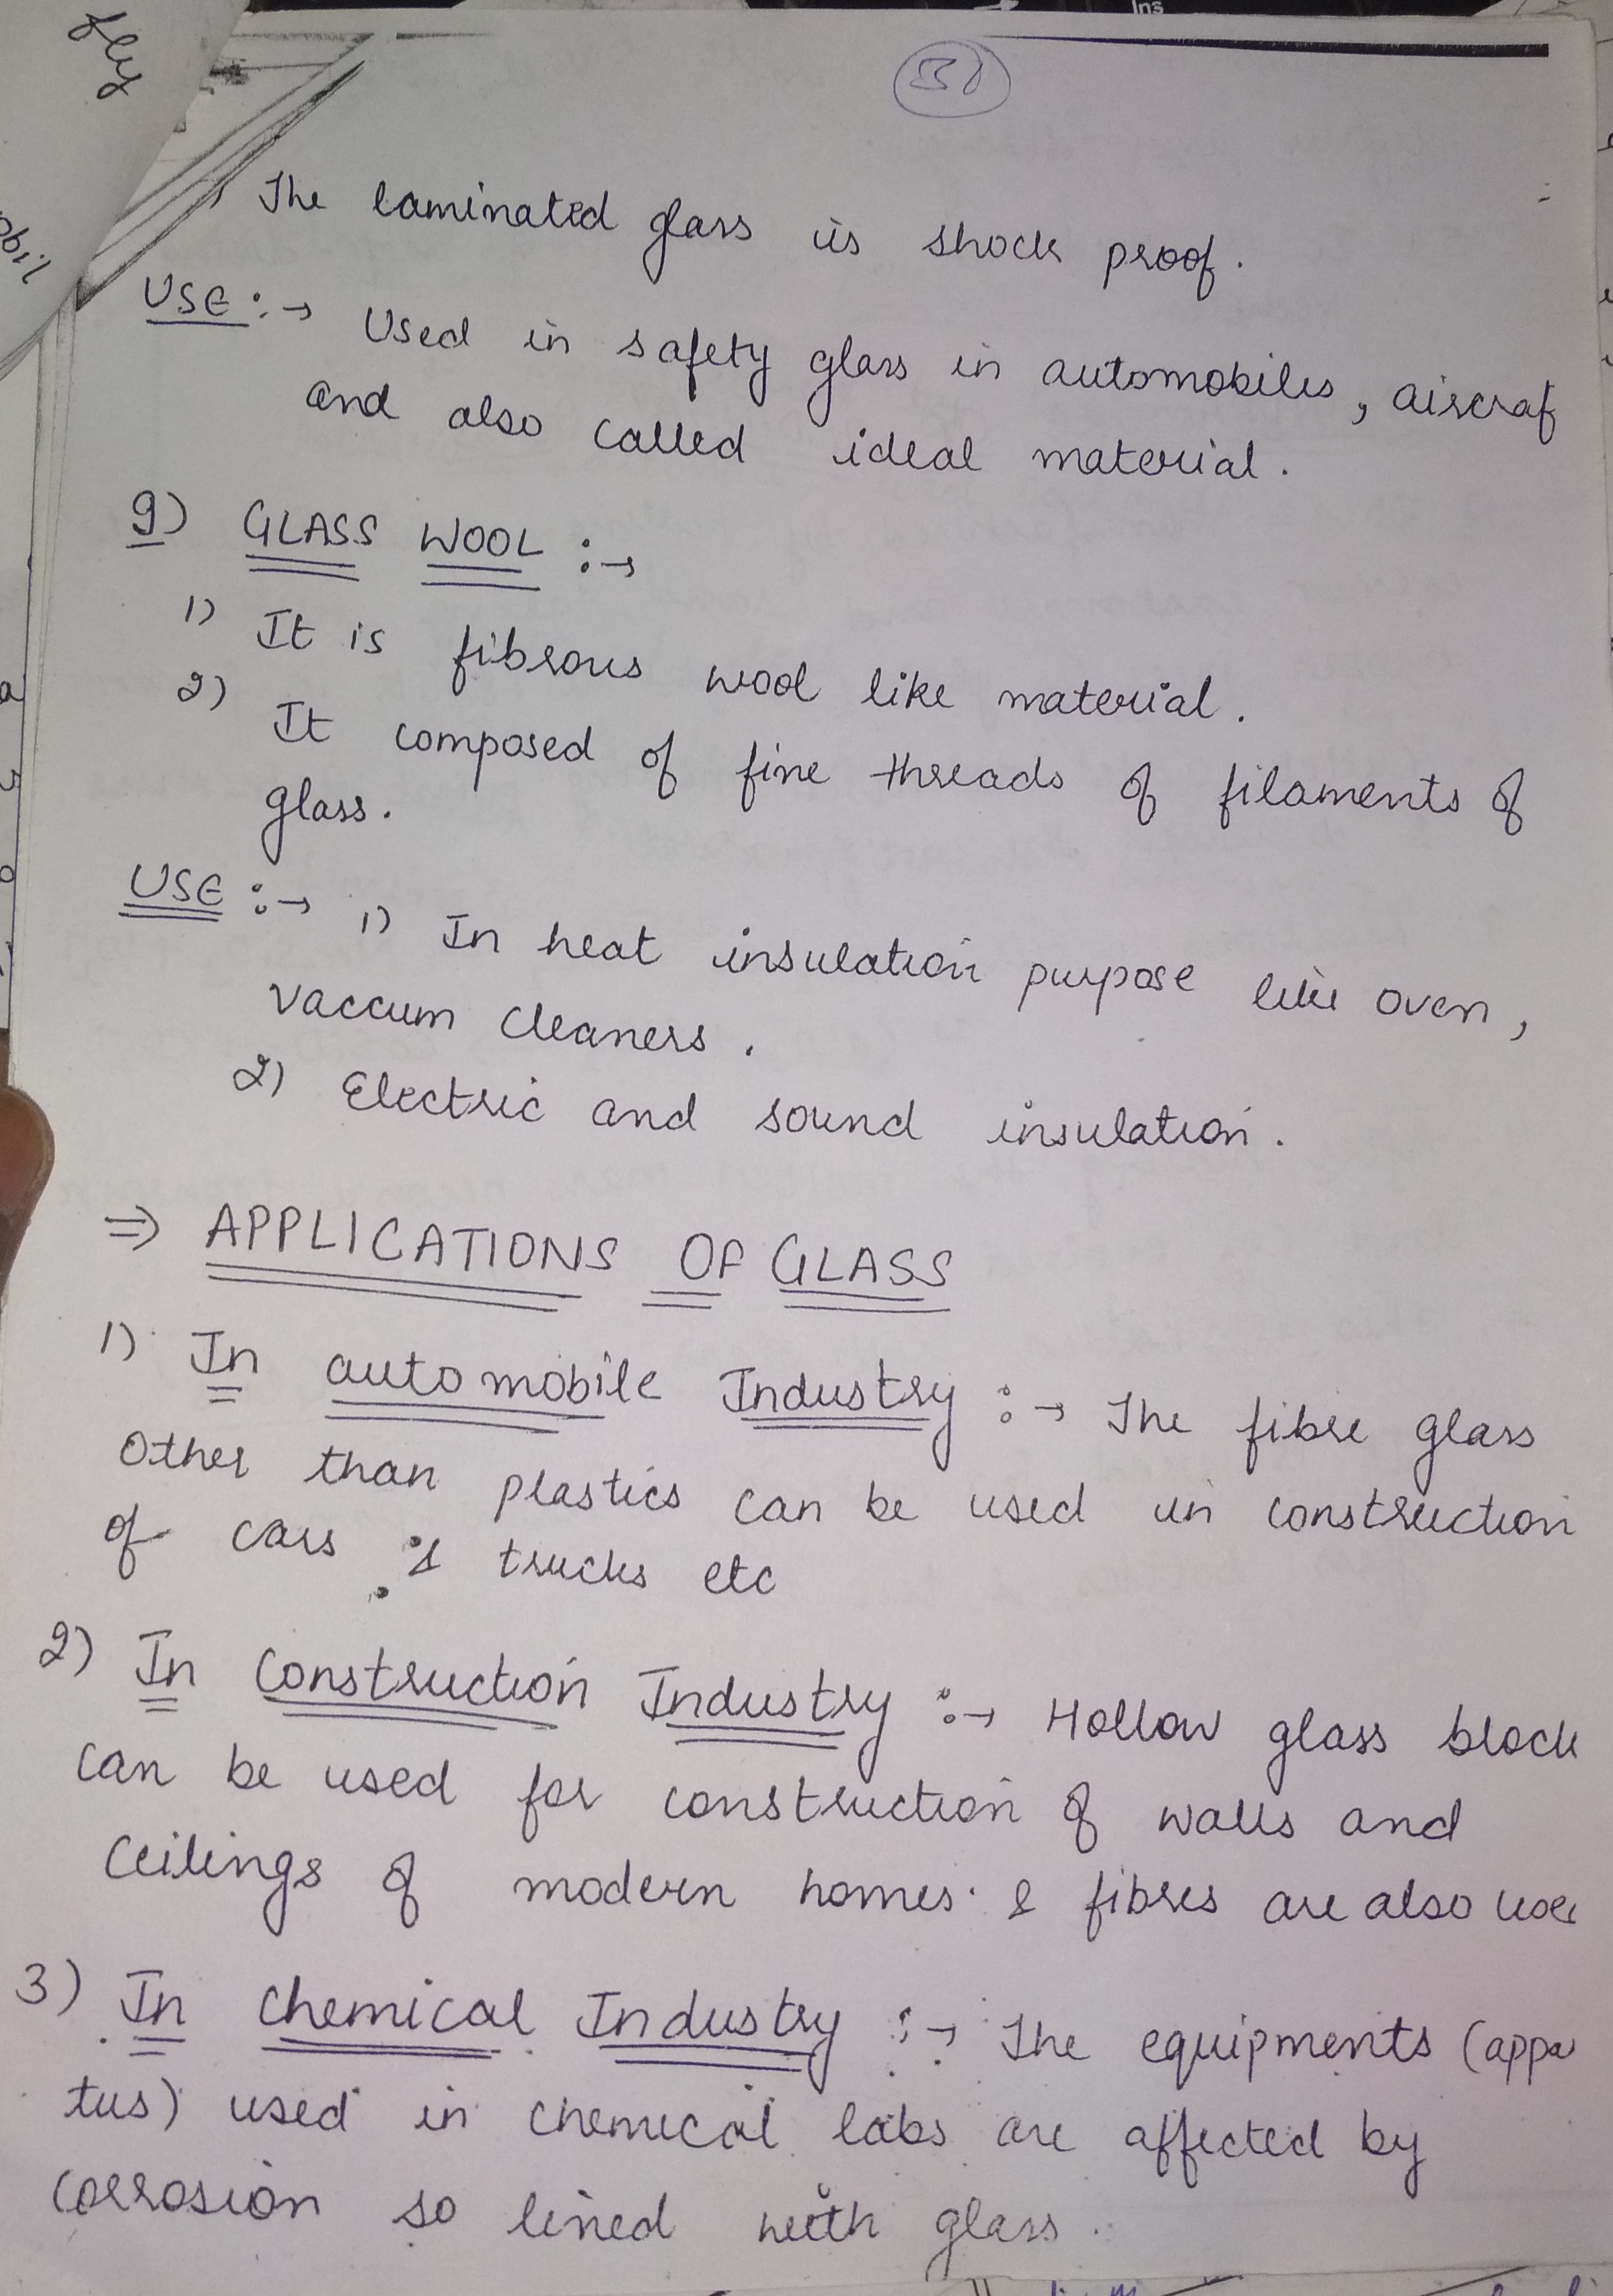 Ins
fly
obil
The laminated glass is shock proof.
USE :→ Used in safety glass in automobiles, aircraf
and also called ideal material.
9) GLASS WOOL :→
1) It is fibrous wool like material.
2) It composed of fine threads of filaments of
glass.
USE :→ 1) In heat insulation purpose like oven,
vaccum cleaners.
2) Electric and sound insulation.
⇒ APPLICATIONS OF GLASS
1) In automobile Industry :→ The fibre glass
Other than plastics can be used in construction
of cars & trucks etc
2) In Construction Industry :→ Hollow glass block
can be used for construction of walls and
Ceilings of modern homes. & fibres are also use
3) In Chemical Industry :→ The equipments (appa
tus) used in chemical labs are affected by
corrosion so lined with glass.